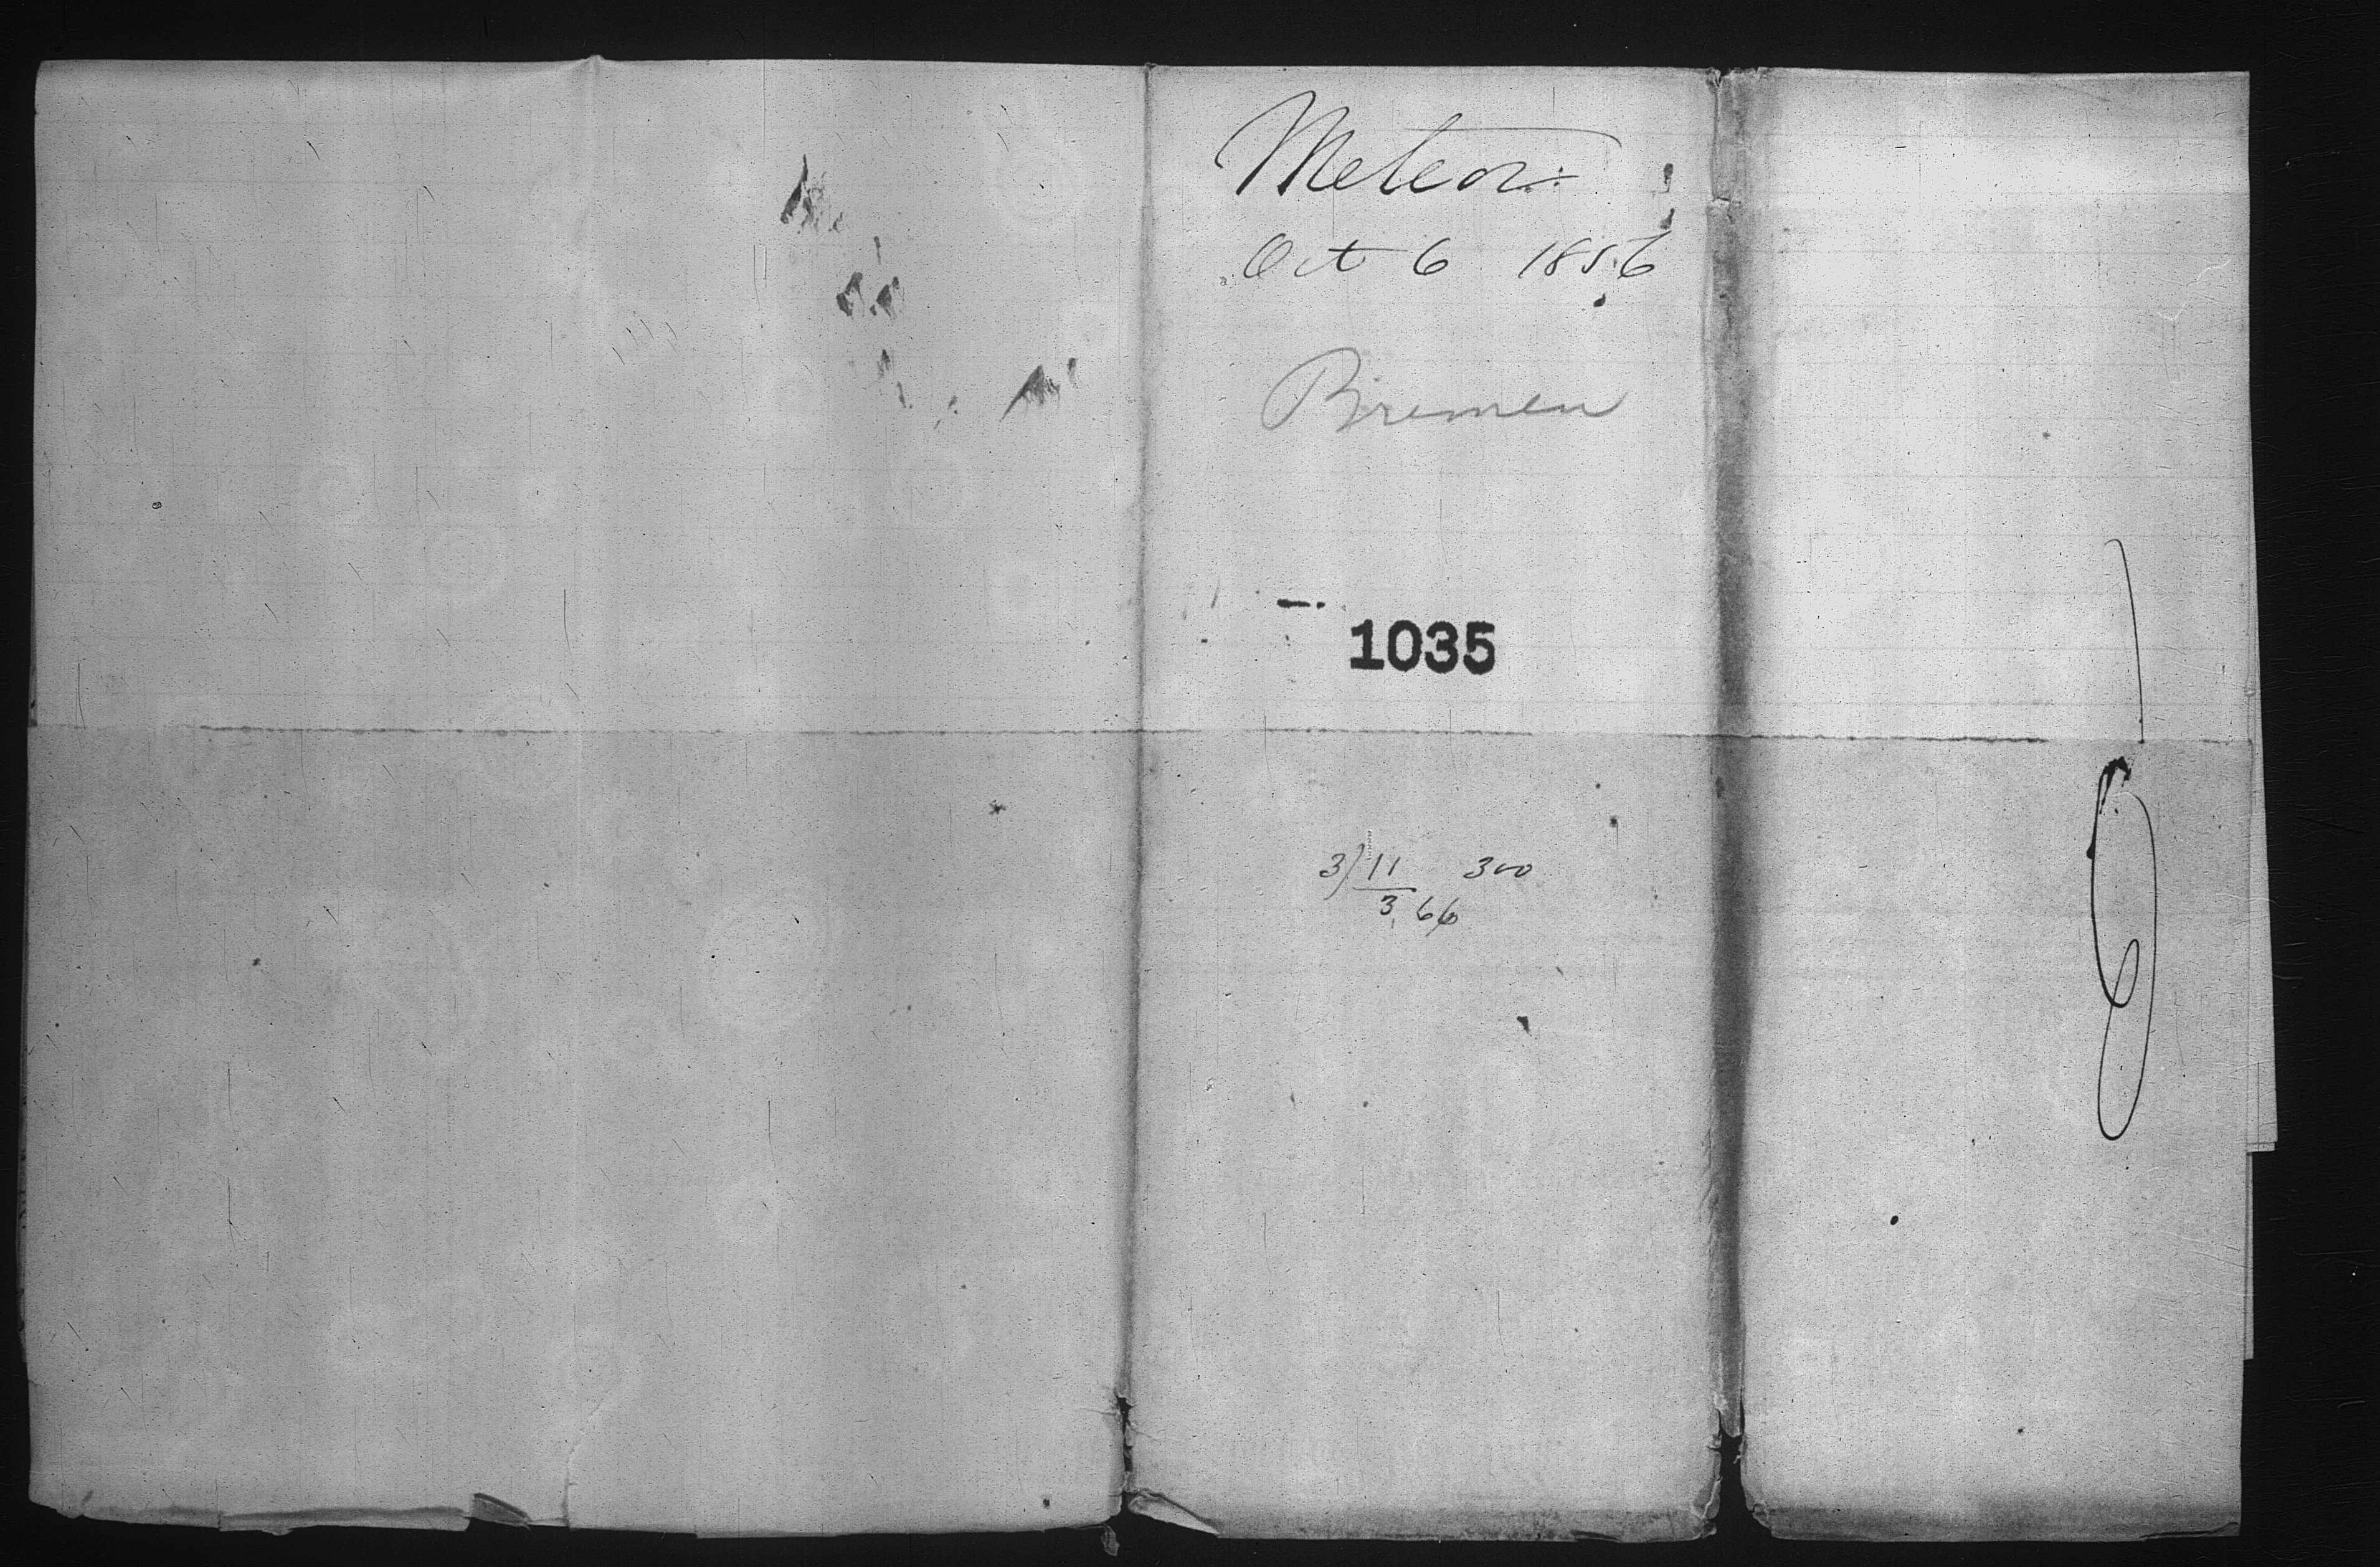 Meteor
Oct 6 1856
Bremen
1035
3)11 300
3,66